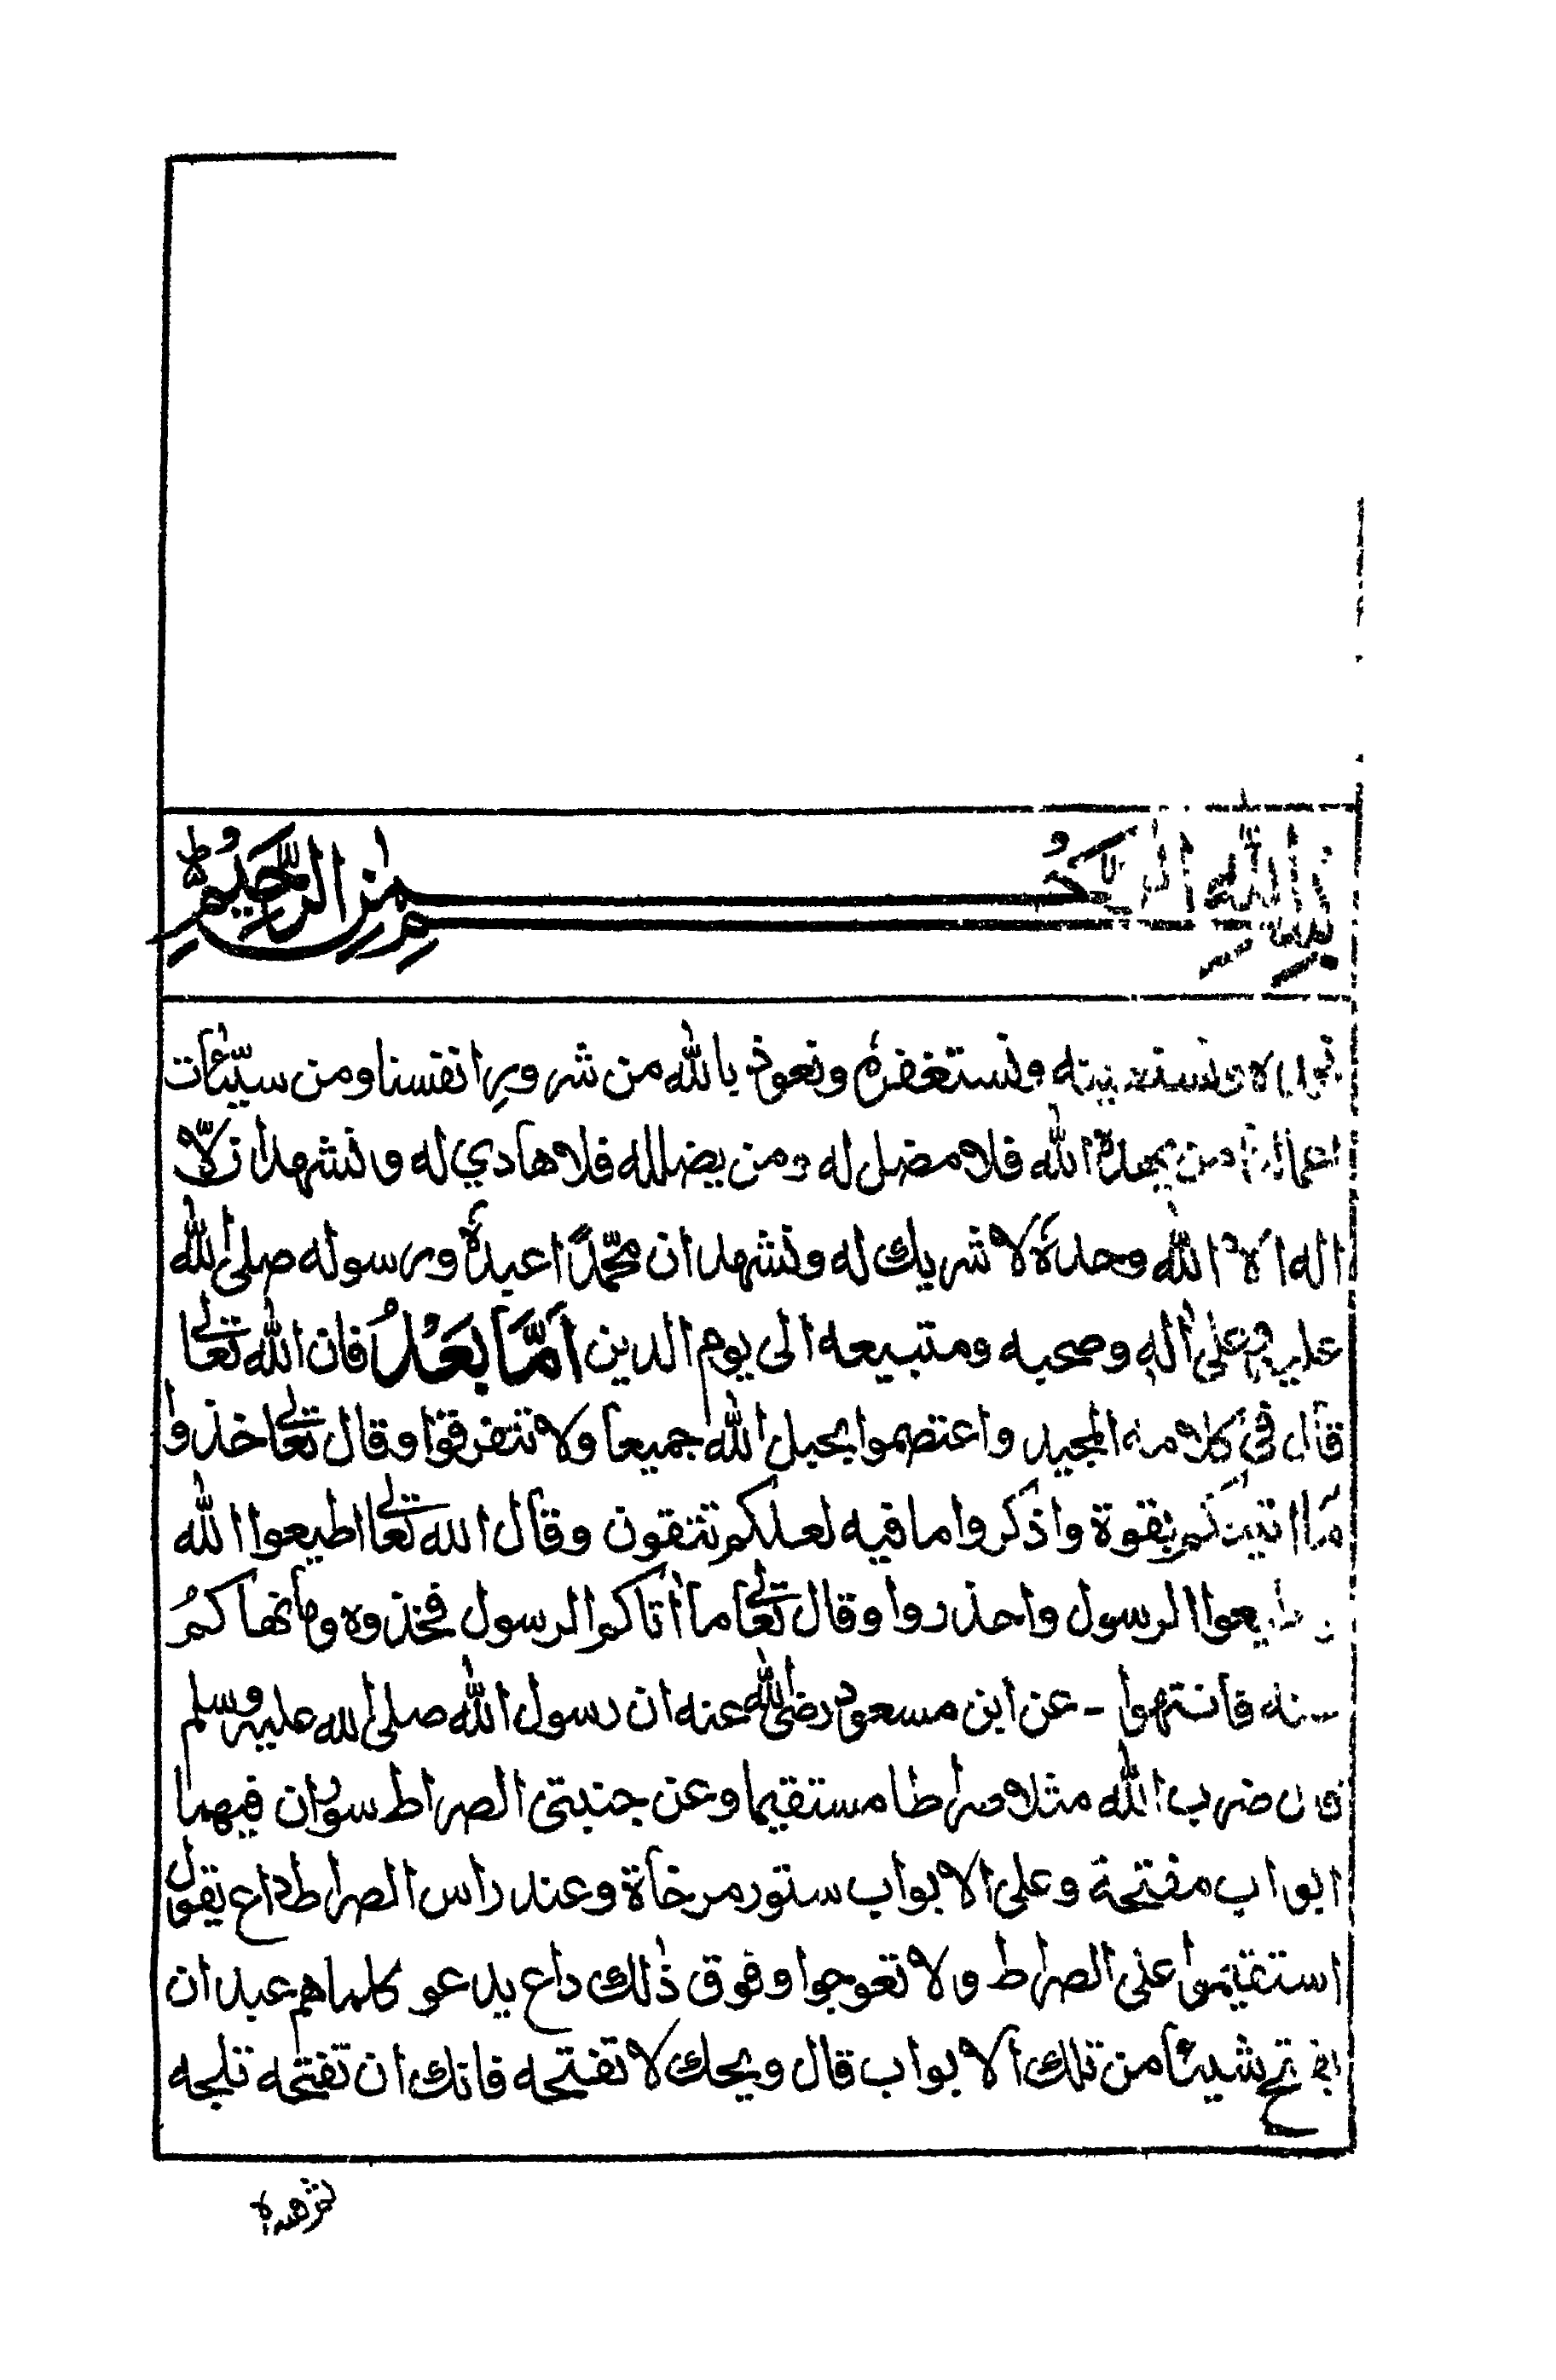 بسم الله الرحمن الرحيم
نحمده ونستعينه ونستغفره ونعوذ بالله من شرور انفسنا ومن سيّئات
اعمالنا من يهده الله فلا مضل له ومن يضلله فلا هادي له ونشهد ان لّا
اله الا الله وحده لا شريك له ونشهد ان محمّدًا عبده ورسوله صلى الله
عليه وعلى اله وصحبه ومتبيعه الى يوم الدين اَمَّا بَعْدُ فان الله تعالى
قال في كلامه المجيد واعتصموا بحبل الله جميعا ولا تتفرقوا وقال تعالى خذوا
ما اتيتكم بقوة واذكروا ما فيه لعلكم تتقون وقال الله تعالى اطيعوا الله
واطيعوا الرسول واحذروا وقال تعالى ما اتاكم الرسول فخذوه وما نهاكمُ
عنه فانتهوا - عن ابن مسعود رضي الله عنه ان رسول الله صلى الله عليه وسلم
قال ضرب الله مثلا صراطا مستقيما وعن جنبتى الصراط سوران فيهما
ابواب مفتحة وعلى الابواب ستور مرخاة وعند راس الصراط داع يقول
استقيموا على الصراط ولا تعوجوا وفوق ذلك داع يدعو كلما هم عبد ان
يفتح شيئا من تلك الابواب قال ويحك لا تفتحه فانك ان تفتحه تلجه